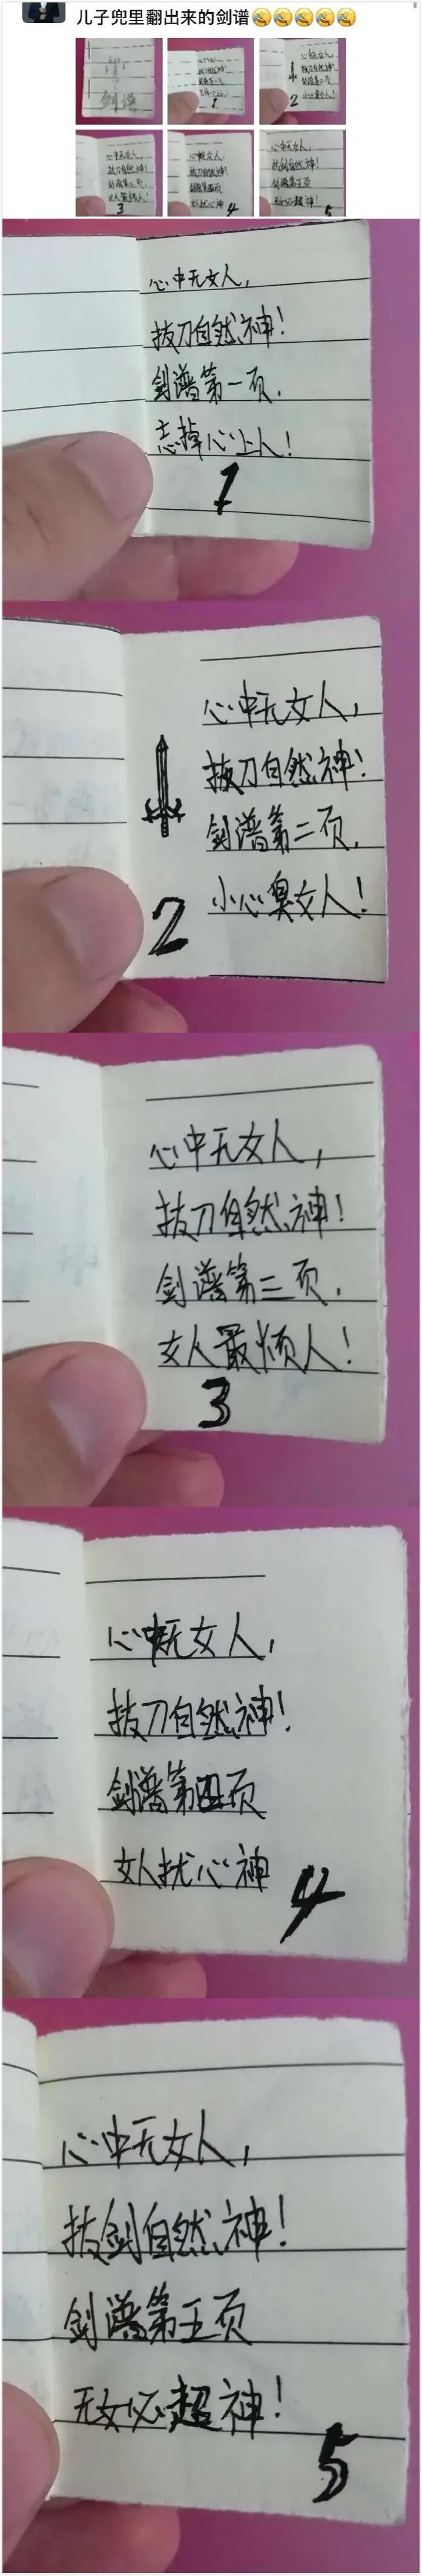 儿子兜里翻出来的剑谱
剑谱
心中无女人,
拔刀自然神!
剑谱第一页,
忘掉心上人!
1
心中无女人,
拔刀自然神!
剑谱第二页,
小心臭女人!
2
心中无女人,
拔刀自然神!
剑谱第三页,
女人最烦人!
3
心中无女人,
拔刀自然神!
剑谱第四页
女人扰心神
4
心中无女人,
拔剑自然神!
剑谱第五页
无女必超神!
5